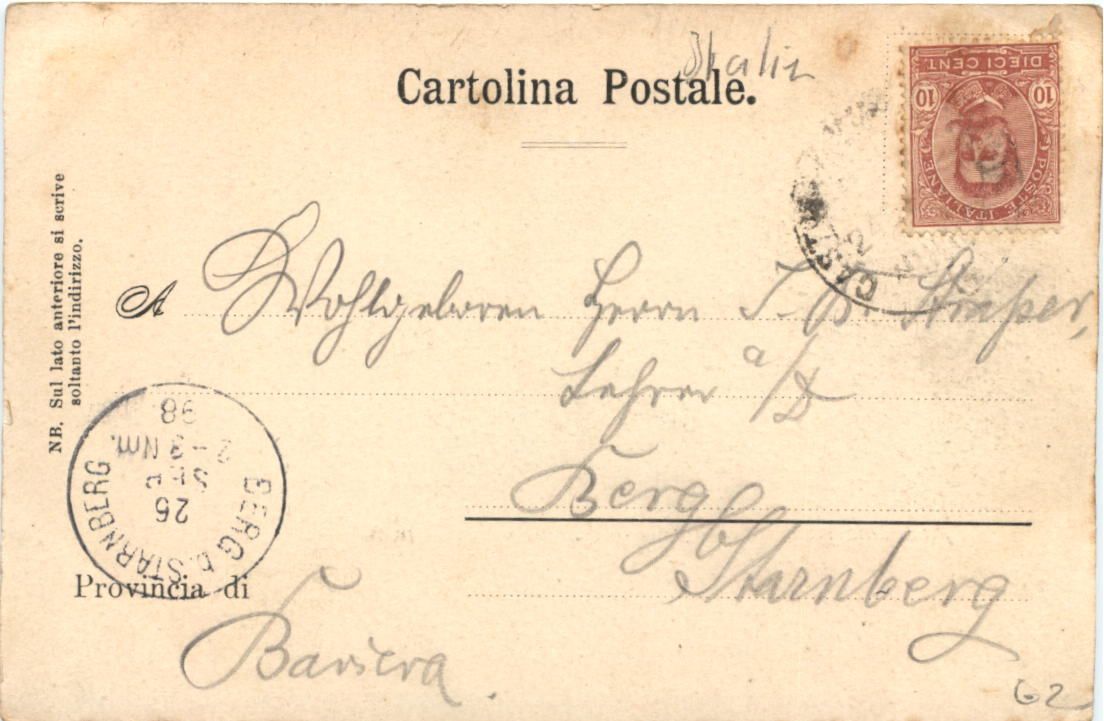 Italia
Cartolina Postale.
DIECI CENT.
10 10
POSTE ITALIANE
NB. Sul lato anteriore si scrive
soltanto l'indirizzo.
A Wohlgeboren Herrn J. B.
Lehrer a/D
Berg
b/Starnberg
Provincia di
Baviera.
BERG b. STARNBERG
25
SEP
2-3 Nm.
98
62